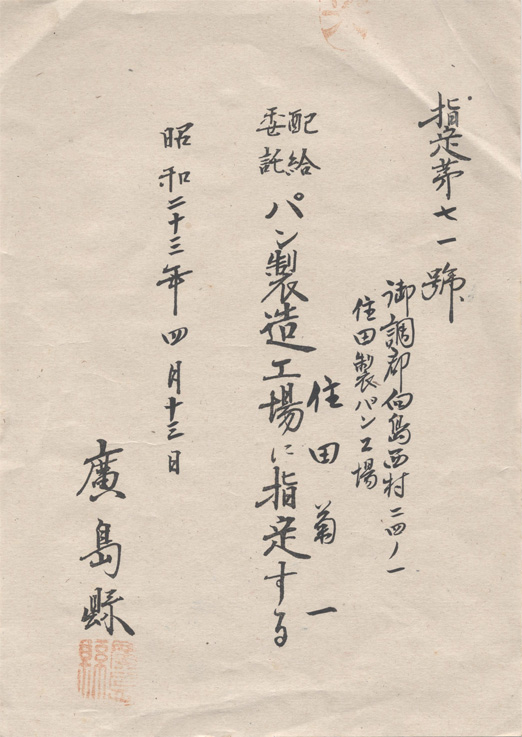 指定第七一號
御調郡向島西村二四ノ一
住田製パン工場
住田菊一
配給
委託
パン製造工場に指定する
昭和二十三年四月十三日
廣島縣